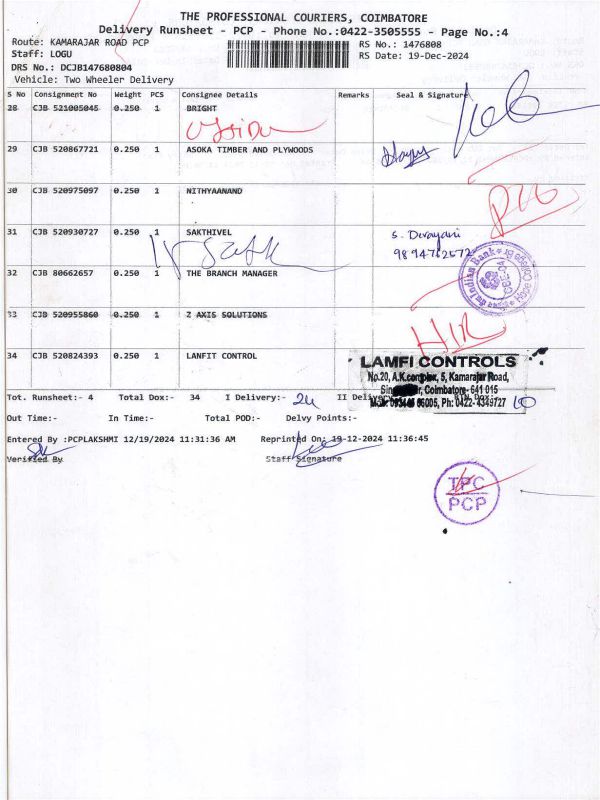 THE PROFESSIONAL COURIERS, COIMBATORE
Delivery Runsheet - PCP - Phone No.:0422-3505555 - Page No.:4
Route: KAMARAJAR ROAD PCP RS No.: 1476808
Staff: LOGU RS Date: 19-Dec-2024
DRS No.: DCJB147680804
Vehicle: Two Wheeler Delivery
S No Consignment No Weight PCS Consignee Details Remarks Seal & Signature
28 CJB 521005045 0.250 1 BRIGHT
29 CJB 520867721 0.250 1 ASOKA TIMBER AND PLYWOODS
30 CJB 520975097 0.250 1 NITHYAANAND
31 CJB 520930727 0.250 1 SAKTHIVEL S. Devayani
9894762672
32 CJB 80662657 0.250 1 THE BRANCH MANAGER
Indian Bank
Hope College Br
33 CJB 520955860 0.250 1 Z AXIS SOLUTIONS
34 CJB 520824393 0.250 1 LANFIT CONTROL
LAMFI CONTROLS
No.20, A.K.complex, 5, Kamarajar Road,
Coimbatore- 641 015
Ph: 0422-4349727
Tot. Runsheet:- 4 Total Dox:- 34 I Delivery:- 24 II Delivery 10
Out Time:- In Time:- Total POD:- Delvy Points:-
Entered By :PCPLAKSHMI 12/19/2024 11:31:36 AM Reprinted On: 19-12-2024 11:36:45
Verified By Staff Signature
TPC
PCP